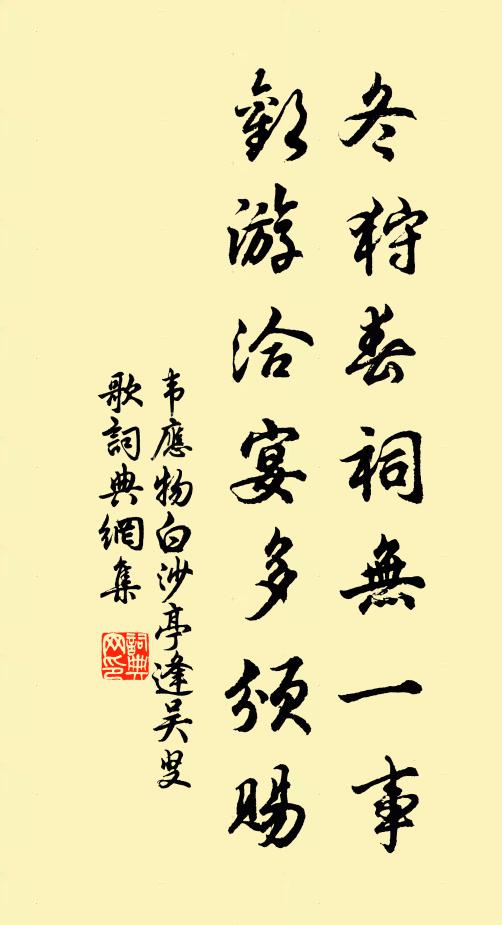 冬狩春祠無一事
歡游洽宴多頒賜
韦應物白沙亭逢吴叟
歌詞典網集
詞典
网印